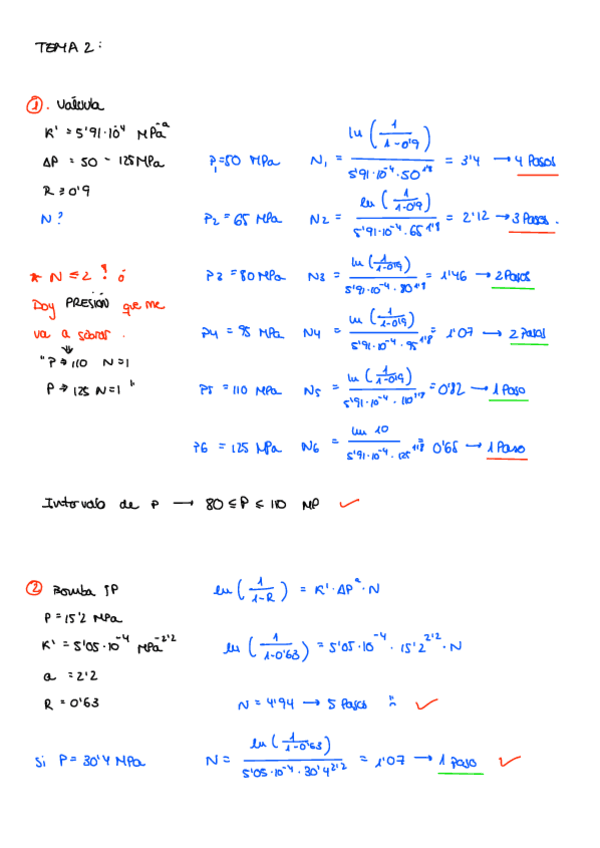 TEMA 2:
①. Válvula
K' = 5'91·10⁻⁴ MPa⁻ᵃ
ΔP = 50 - 125 MPa
R ≥ 0'9
N?
* N ≤ 2 ! ó
Doy PRESIÓN que me
va a sobrar.
"P → 110 N=1
P → 125 N=1"
P₁=50 MPa N₁ = ln(1/(1-0'9)) / (5'91·10⁻⁴·50^1'8) = 3'4 → 4 Pasos
P₂ = 65 MPa N₂ = ln(1/(1-0'9)) / (5'91·10⁻⁴·65^1'8) = 2'12 → 3 Pasos.
P₃ = 80 MPa N₃ = ln(1/(1-0'9)) / (5'91·10⁻⁴·80^1'8) = 1'46 → 2 Pasos
P₄ = 95 MPa N₄ = ln(1/(1-0'9)) / (5'91·10⁻⁴·95^1'8) = 1'07 → 2 Pasos
P₅ = 110 MPa N₅ = ln(1/(1-0'9)) / (5'91·10⁻⁴·110^1'8) = 0'82 → 1 Paso
P₆ = 125 MPa N₆ = ln 10 / (5'91·10⁻⁴·125^1'8) = 0'65 → 1 Paso
Intervalo de P → 80 ≤ P ≤ 110 MP ✓
② Bomba IP
P = 15'2 MPa
K' = 5'05·10⁻⁴ MPa^-2'2
a = 2'2
R = 0'63
ln(1/(1-R)) = K'·ΔPᵃ·N
ln(1/(1-0'63)) = 5'05·10⁻⁴·15'2^2'2·N
N = 4'94 → 5 Pasos ✓
Si P = 30'4 MPa N = ln(1/(1-0'63)) / (5'05·10⁻⁴·30'4^2'2) = 1'07 → 1 paso ✓